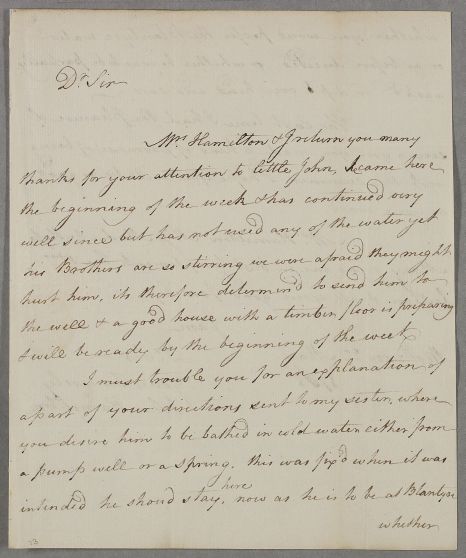 Dr. Sir
Mrs. Hamilton & I return you many
thanks for your attention to little John, came here
the beginning of the week & has continued very
well since but has not used any of the water yet
his Brothers are so stirring we were afraid they might
hurt him, its therefore determin'd to send him to
the well & a good house with a timber floor is preparing
& will be ready by the beginning of the week
I must trouble you for an explanation of
a part of your directions sent to my sister, where
you desire him to be bathed in cold water either from
a pump well or a spring. this was fix'd when it was
here
intended he shoud stay, now as he is to be at Blantyre
whether